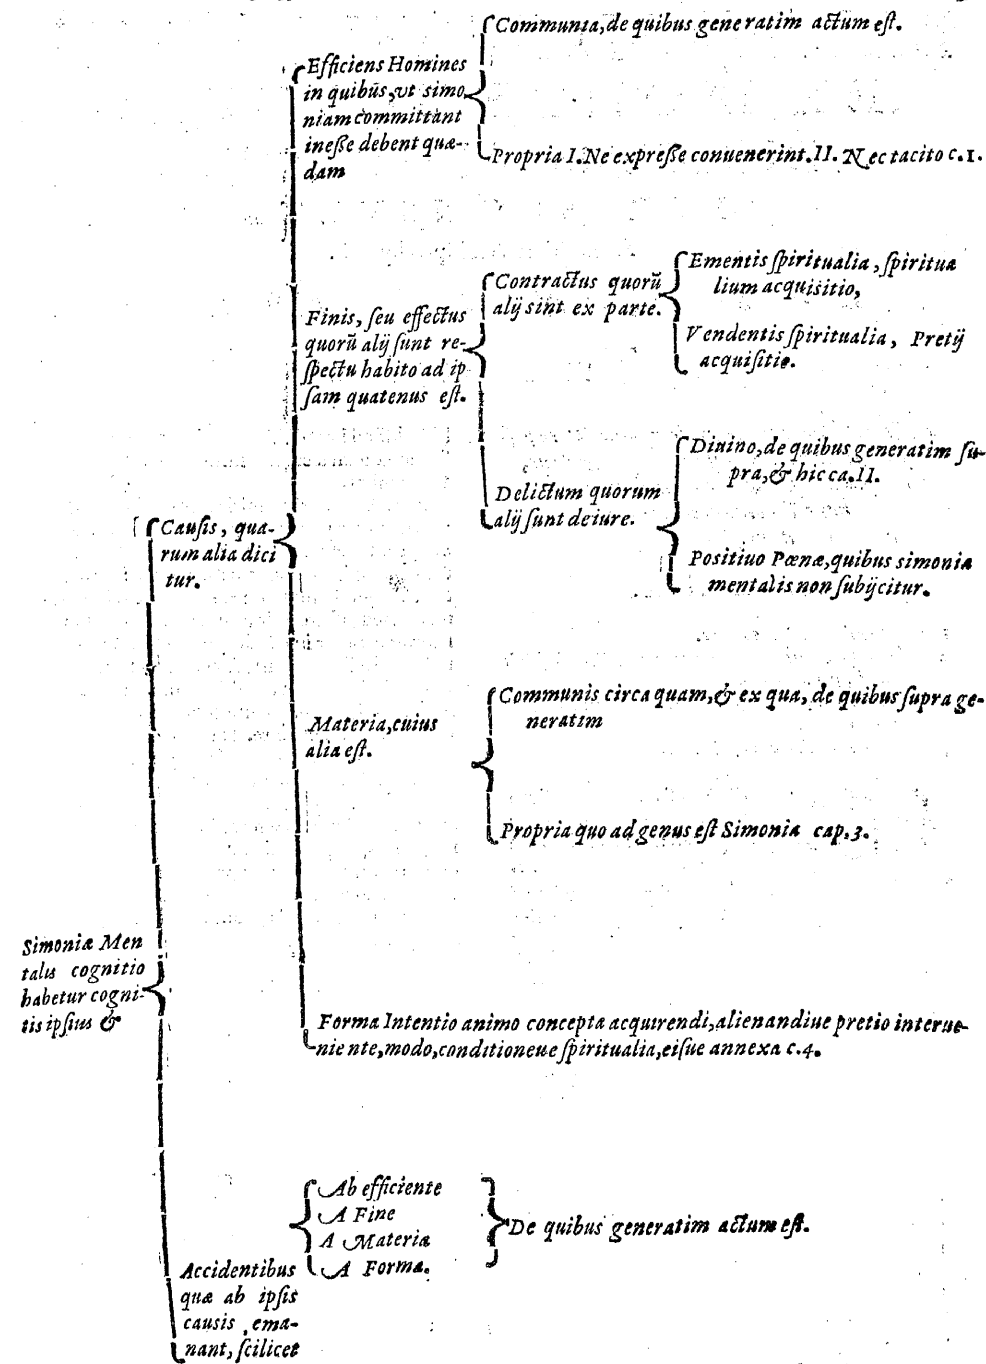 Simoniæ Men
talis cognitio
habetur cogni-
tis ipſius &
Cauſis, qua-
rum alia dici
tur.
Efficiens Homines
in quibūs, vt simo
niam committant
ineſſe debent quæ-
dam
Communia, de quibus generatim actum eſt.
Propria I. Ne expreſſe conuenerint. II. Nec tacito c.1.
Finis, ſeu effectus
quorū alij ſunt re-
ſpectu habito ad ip
ſam quatenus eſt.
Contractus quorū
alij sint ex parte.
Ementis ſpiritualia, ſpiritua
lium acquisitio,
Vendentis ſpiritualia, Pretij
acquiſitio.
Delictum quorum
alij ſunt de iure.
Diuino, de quibus generatim ſu-
pra, & hic ca. II.
Poſitiuo Pœnæ, quibus simonia
mentalis non ſubijcitur.
Materia, cuius
alia eſt.
Communis circa quam, & ex qua, de quibus ſupra ge-
neratim
Propria quo ad genus eſt Simonia cap. 3.
Forma Intentio animo concepta acquirendi, alienandiue pretio interue-
niente, modo, conditioneue ſpiritualia, eiſue annexa c.4.
Accidentibus
quæ ab ipſis
causis, ema-
nant, ſcilicet
Ab efficiente
A Fine
A Materia
A Forma.
De quibus generatim actum eſt.